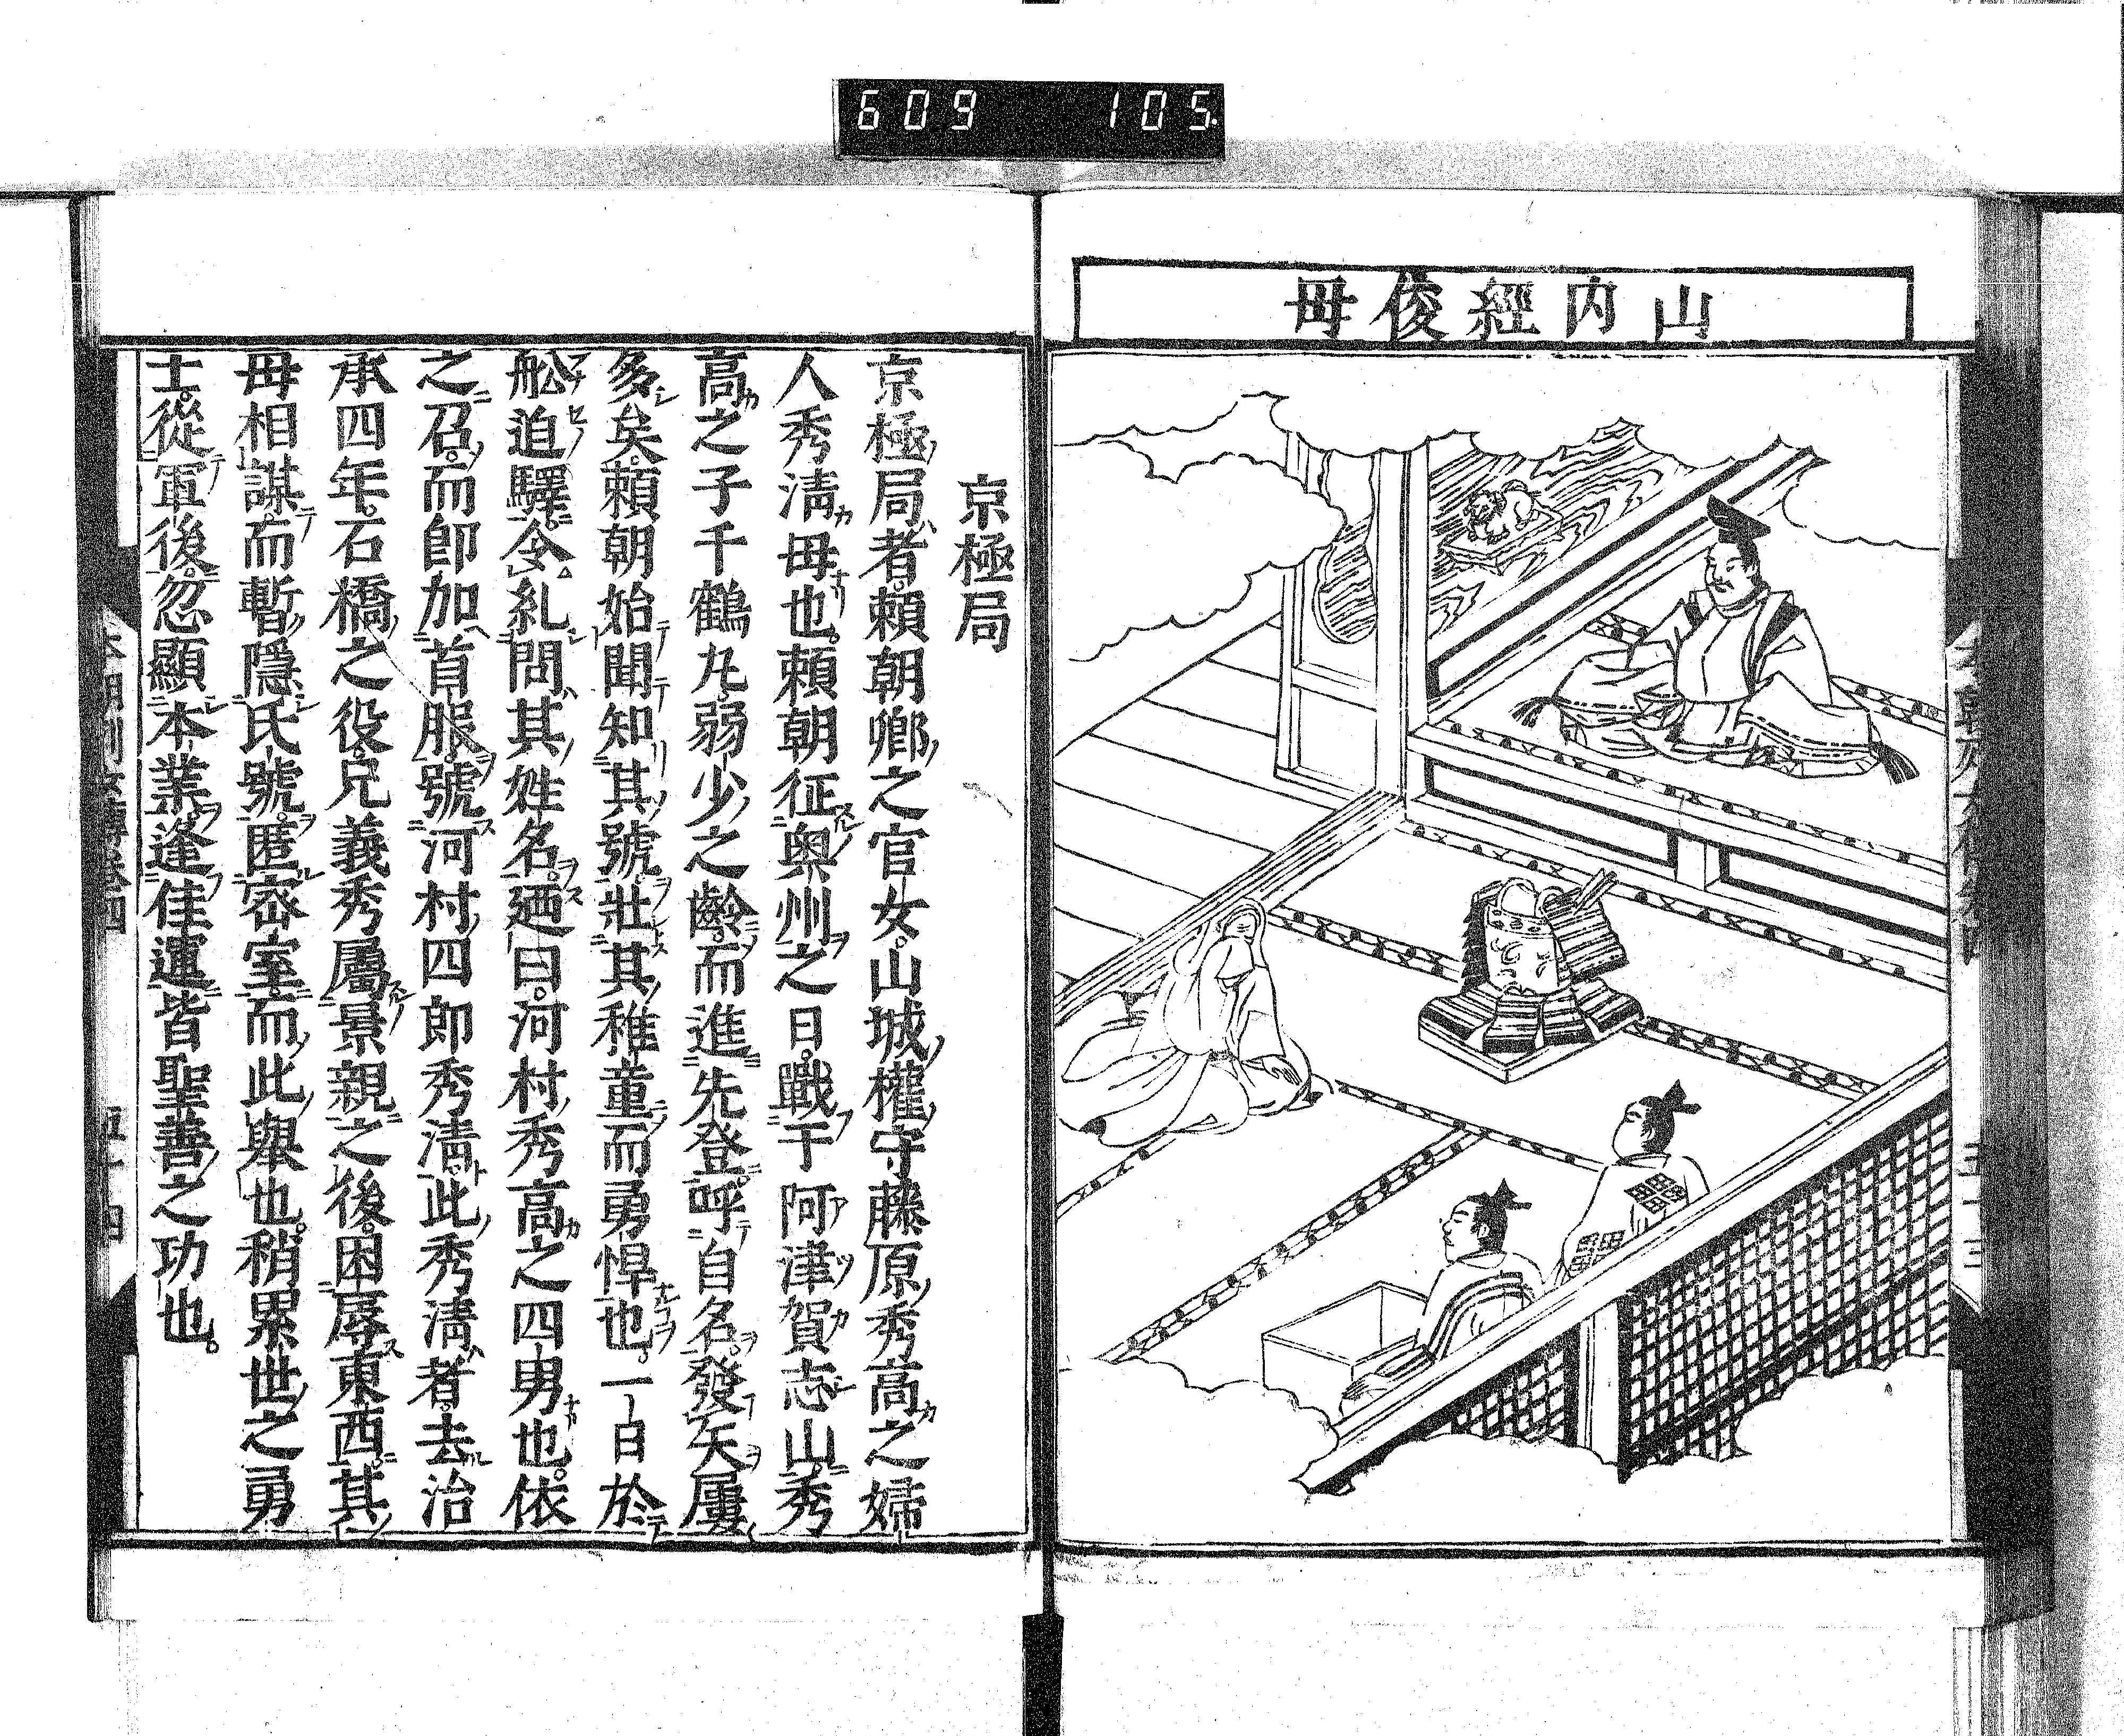 609 105
山内經俊母
京極局
京極局者。頼朝卿之官女。山城權守藤原秀高之婦
人秀淸母也。頼朝征奧州之日。戰于阿津賀志山。秀
高之子千鶴丸。弱少之齡。而進先登。呼自名。發矢屢
多矣。頼朝始聞知其號。壯其稚童而勇悍也。一日於
舩迫驛。令糺問其姓名。廼曰。河村秀高之四男也。依
之召。而卽加首服。號河村四郎秀淸。此秀淸者。去治
承四年。石橋之役。兄義秀屬景親之後。困辱東西。其
母相謀。而暫隱氏號。匿密室。而此擧也。稍累世之勇
士。從軍後。忽顯本業。逢佳運。皆聖善之功也。